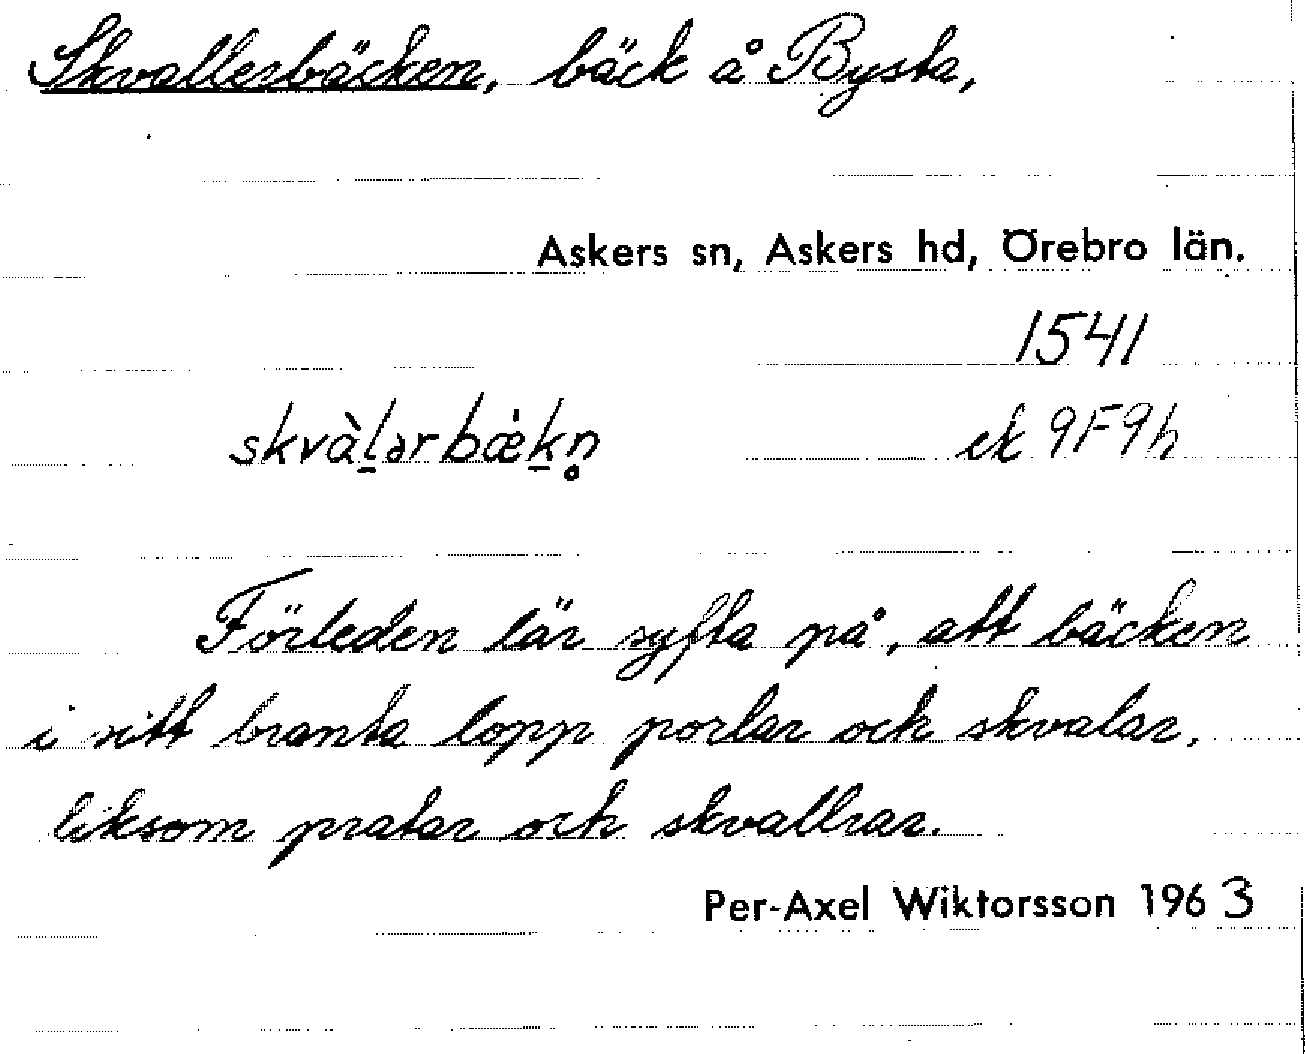 Skvallerbäcken, bäck å Bysta,
Askers sn, Askers hd, Örebro län.
1541
skvàl̠ərbæ̀k̠n̥ ek 9F9h
Förleden lär syfta på, att bäcken
i sitt branta lopp porlar och skvalar,
liksom pratar och skvallrar.
Per-Axel Wiktorsson 1963